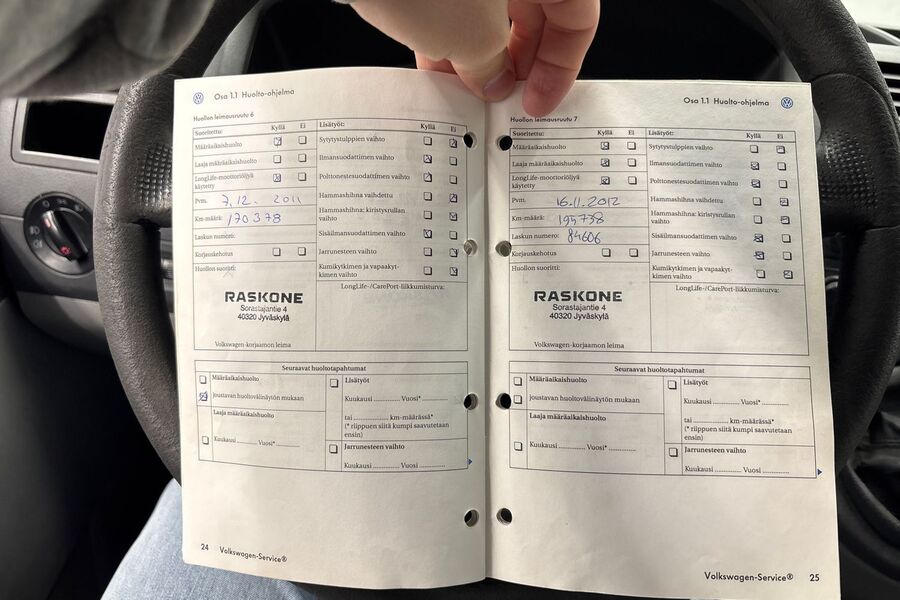 Osa 1.1 Huolto-ohjelma
Huollon leimausruutu 6
Suoritettu: Kyllä Ei
Määräaikaishuolto
Laaja määräaikaishuolto
LongLife-moottoriöljyä
käytetty
Pvm. 7.12. 2011
Km-määrä: 170 378
Laskun numero:
Korjauskehotus
Huollon suoritti:
RASKONE
Sorastajantie 4
40320 Jyväskylä
Volkswagen-korjaamon leima
Lisätyöt: Kyllä Ei
Sytytystulppien vaihto
Ilmansuodattimen vaihto
Polttonestesuodattimen vaihto
Hammashihna vaihdettu
Hammashihna: kiristysrullan
vaihto
Sisäilmansuodattimen vaihto
Jarrunesteen vaihto
Kumikytkimen ja vapaakyt-
kimen vaihto
LongLife-/CarPort-liikkumisturva:
Seuraavat huoltotapahtumat
Määräaikaishuolto
joustavan huoltovälinäytön mukaan
Laaja määräaikaishuolto
Kuukausi ............ Vuosi* ............
Lisätyöt
Kuukausi ............ Vuosi* ............
tai ............ km-määrässä*
(* riippuen siitä kumpi saavutetaan
ensin)
Jarrunesteen vaihto
Kuukausi ............ Vuosi ............
24 Volkswagen-Service®
Osa 1.1 Huolto-ohjelma
Huollon leimausruutu 7
Suoritettu: Kyllä Ei
Määräaikaishuolto
Laaja määräaikaishuolto
LongLife-moottoriöljyä
käytetty
Pvm. 16.11.2012
Km-määrä: 195738
Laskun numero: 84606
Korjauskehotus
Huollon suoritti:
RASKONE
Sorastajantie 4
40320 Jyväskylä
Volkswagen-korjaamon leima
Lisätyöt: Kyllä Ei
Sytytystulppien vaihto
Ilmansuodattimen vaihto
Polttonestesuodattimen vaihto
Hammashihna vaihdettu
Hammashihna: kiristysrullan
vaihto
Sisäilmansuodattimen vaihto
Jarrunesteen vaihto
Kumikytkimen ja vapaakyt-
kimen vaihto
LongLife-/CarPort-liikkumisturva:
Seuraavat huoltotapahtumat
Määräaikaishuolto
joustavan huoltovälinäytön mukaan
Laaja määräaikaishuolto
Kuukausi ............ Vuosi* ............
Lisätyöt
Kuukausi ............ Vuosi* ............
tai ............ km-määrässä*
(* riippuen siitä kumpi saavutetaan
ensin)
Jarrunesteen vaihto
Kuukausi ............ Vuosi ............
Volkswagen-Service® 25